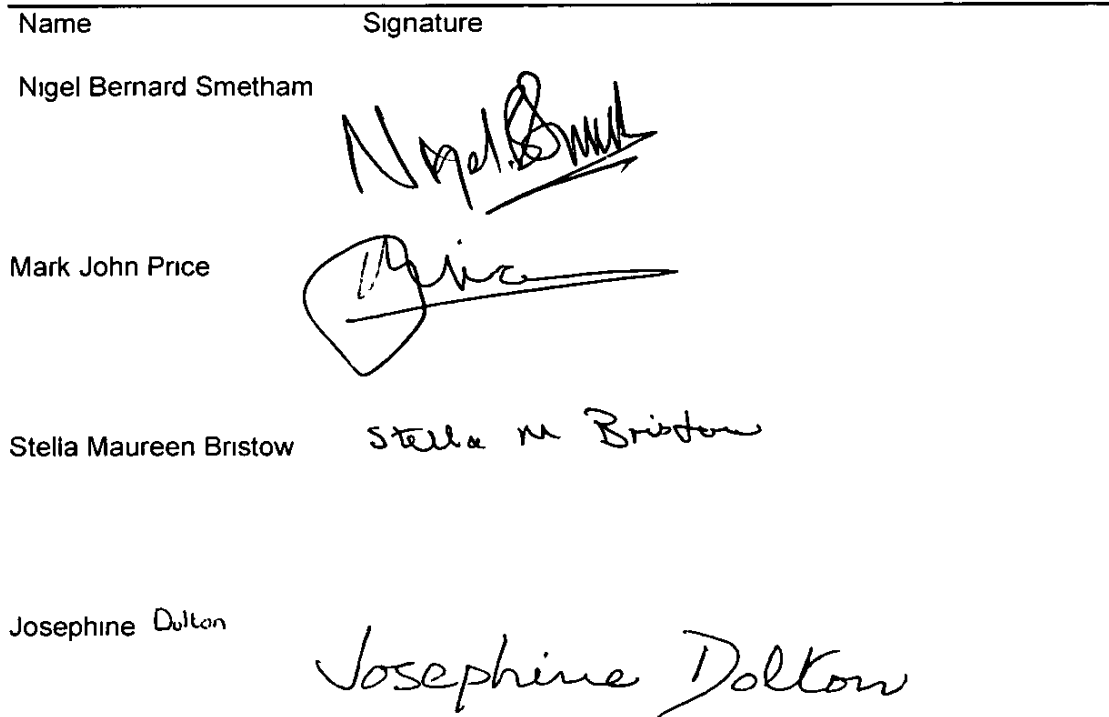 Name Signature
Nigel Bernard Smetham
Mark John Price
Stella Maureen Bristow Stella M Bristow
Josephine Dolton
Josephine Dolton